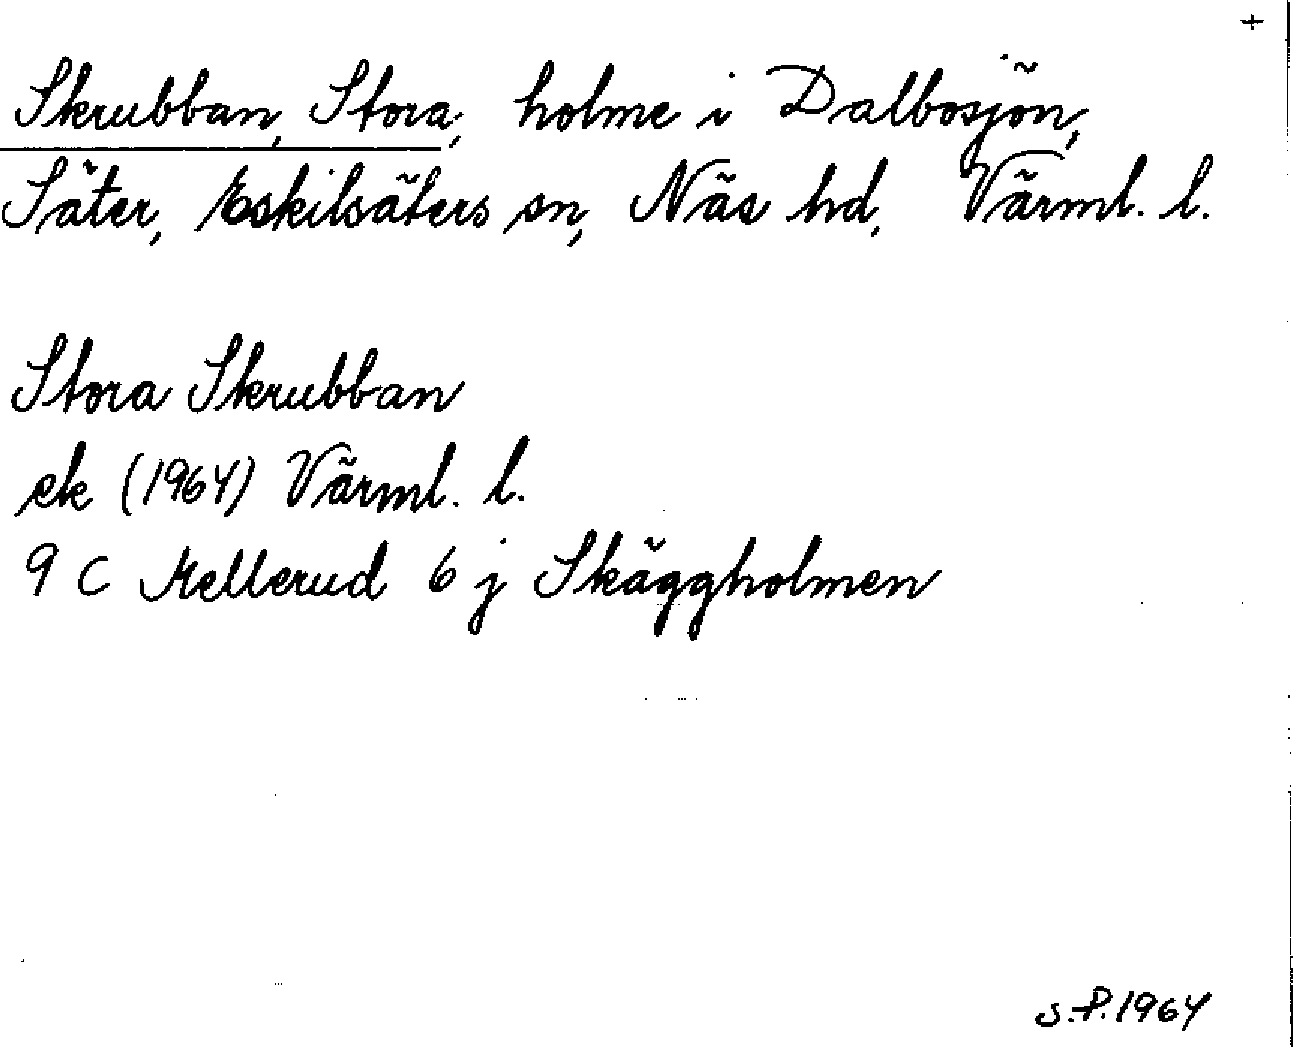 +
Skrubban, Stora, holme i Dalbosjön,
Säter, Eskilsäters sn, Näs hd, Värml. l.
Stora Skrubban
ek (1964) Värml. l.
9 C Mellerud 6 j Skäggholmen
S.P. 1964